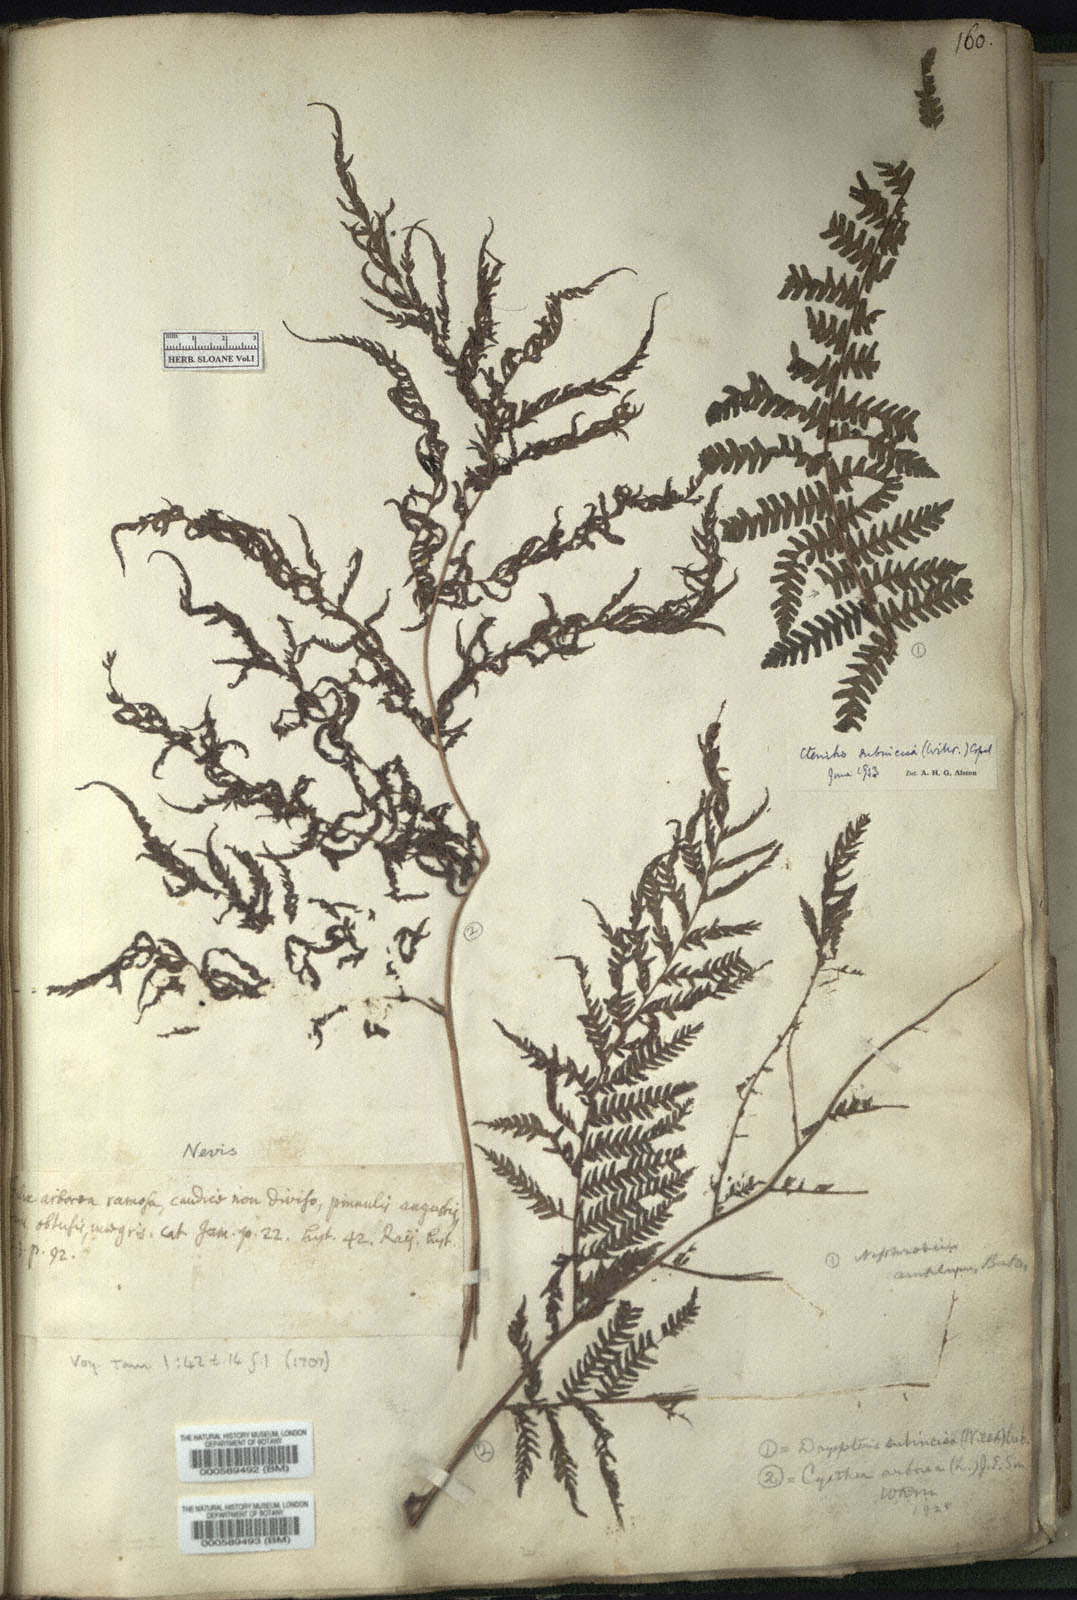 160.
mm 1 2 3
HERB. SLOANE Vol.1
①
Ctenitis subincisa (Willd.) Copel
June 1953 Det. A. H. G. Alston
②
Nevis
arborea ramosa, caudice non diviso, pinnulis angustis
obtusis, nigris. cat. Jam. p. 22. hist. 42. Raij. hist.
3. p. 92.
Voy Jam 1:42 t. 14 f. 1 (1707)
① Nephrodium
amplum, Baker
THE NATURAL HISTORY MUSEUM, LONDON
DEPARTMENT OF BOTANY
000589492 (BM)
THE NATURAL HISTORY MUSEUM, LONDON
DEPARTMENT OF BOTANY
000589493 (BM)
②
① = Dryopteris subincisa (Willd.) Urb.
② = Cyathea arborea (L.) J. E. Sm
1928